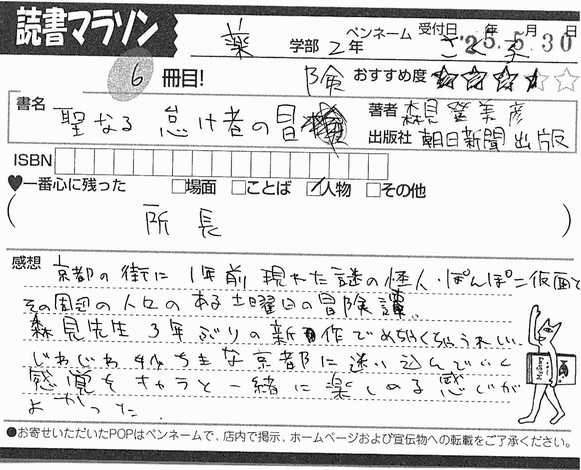 読書マラソン
薬 学部 2年 ペンネーム さくま
受付日 年 月 日
'25.5.30
6 冊目!
おすすめ度 ★★★★☆
険
書名 聖なる 怠け者の冒
著者 森見登美彦
出版社 朝日新聞出版
ISBN
♥一番心に残った □場面 □ことば ☑人物 □その他
( 所長 )
感想 京都の街に 1年前 現れた謎の怪人・ぽんぽこ仮面と
その周辺の人々の ある土曜日の冒険譚。
森見先生 3年ぶりの新作でめちゃくちゃうれしい。
じわじわ な京都に迷い込んでいく
感覚をキャラと一緒に楽しめる感じが
よかった。
●お寄せいただいたPOPはペンネームで、店内で掲示、ホームページおよび宣伝物への転載をご了承ください。